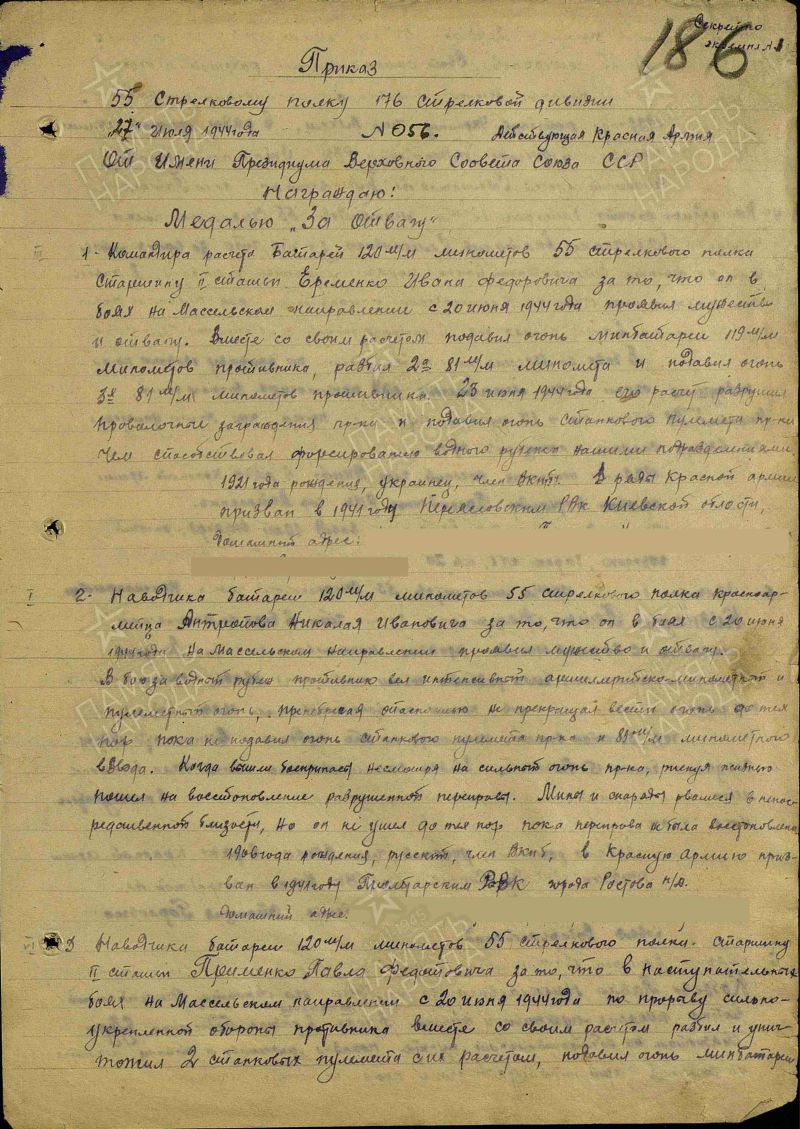 Секретно
экземпл. №1
186
Приказ
55 Стрелковому полку 176 стрелковой дивизии
27 Июля 1944 года №056. Действующая Красная Армия
От Имени Президиума Верховного Совета Союза ССР
Награждаю:
Медалью „За Отвагу“
III
1- Командира расчета Батареи 120 м/м минометов 55 стрелкового полка
Старшину II статьи Еременко Ивана Федоровича за то, что он в
боях на Массельском направлении с 20 июня 1944 года проявил мужество
и отвагу. Вместе со своим расчетом подавил огонь минбатареи 119 м/м
минометов противника, разбил 2а 81 м/м миномета и подавил огонь
3х 81 м/м минометов противника. 23 июня 1944 года его расчет разрушил
проволочные заграждения пр-ка и подавил огонь станкового пулемета пр-ка
Чем способствовал форсированию водного рубежа нашими подразделениями,
1921 года рождения, украинец, член ВКПб. В ряды Красной армии
призван в 1941 году РВК Киевской области,
Домашний адрес:
I
2- Наводчика батареи 120 м/м минометов 55 стрелкового полка красноар-
мейца Антропова Николая Ивановича за то, что он в боях с 20 июня
1944 года на Массельском направлении проявил мужество и отвагу.
В бою за водный рубеж противник вел интенсивный артиллерийско-минометный и
пулеметный огонь, опасностью не прекращал вести огонь до тех
пор, пока не подавил огонь станкового пулемета пр-ка и 81 м/м минометного
взвода. Когда вышли боеприпасы несмотря на сильный огонь пр-ка, рискуя жизнью
пошел на восстоновление разрушенной переправы. Мины и снаряды рвались в непос-
редственной близости, но он не ушел до тех пор пока переправа не была восстоновлена
1906 года рождения, русский, член ВКПб, в Красную Армию приз-
ван в 1941 году РВК города Ростова н/Д.
Домашний адрес.
3 Наводчика батареи 120 м/м минометов 55 стрелкового полка старшину
II статьи Павла Федотовича за то, что в наступательных
боях на Массельском направлении с 20 июня 1944 года по прорыву сильно-
укрепленной обороны противника вместе со своим расчетом разбил и унич-
тожил 2 станковых пулемета с их расчетом, подавил огонь минбатареи